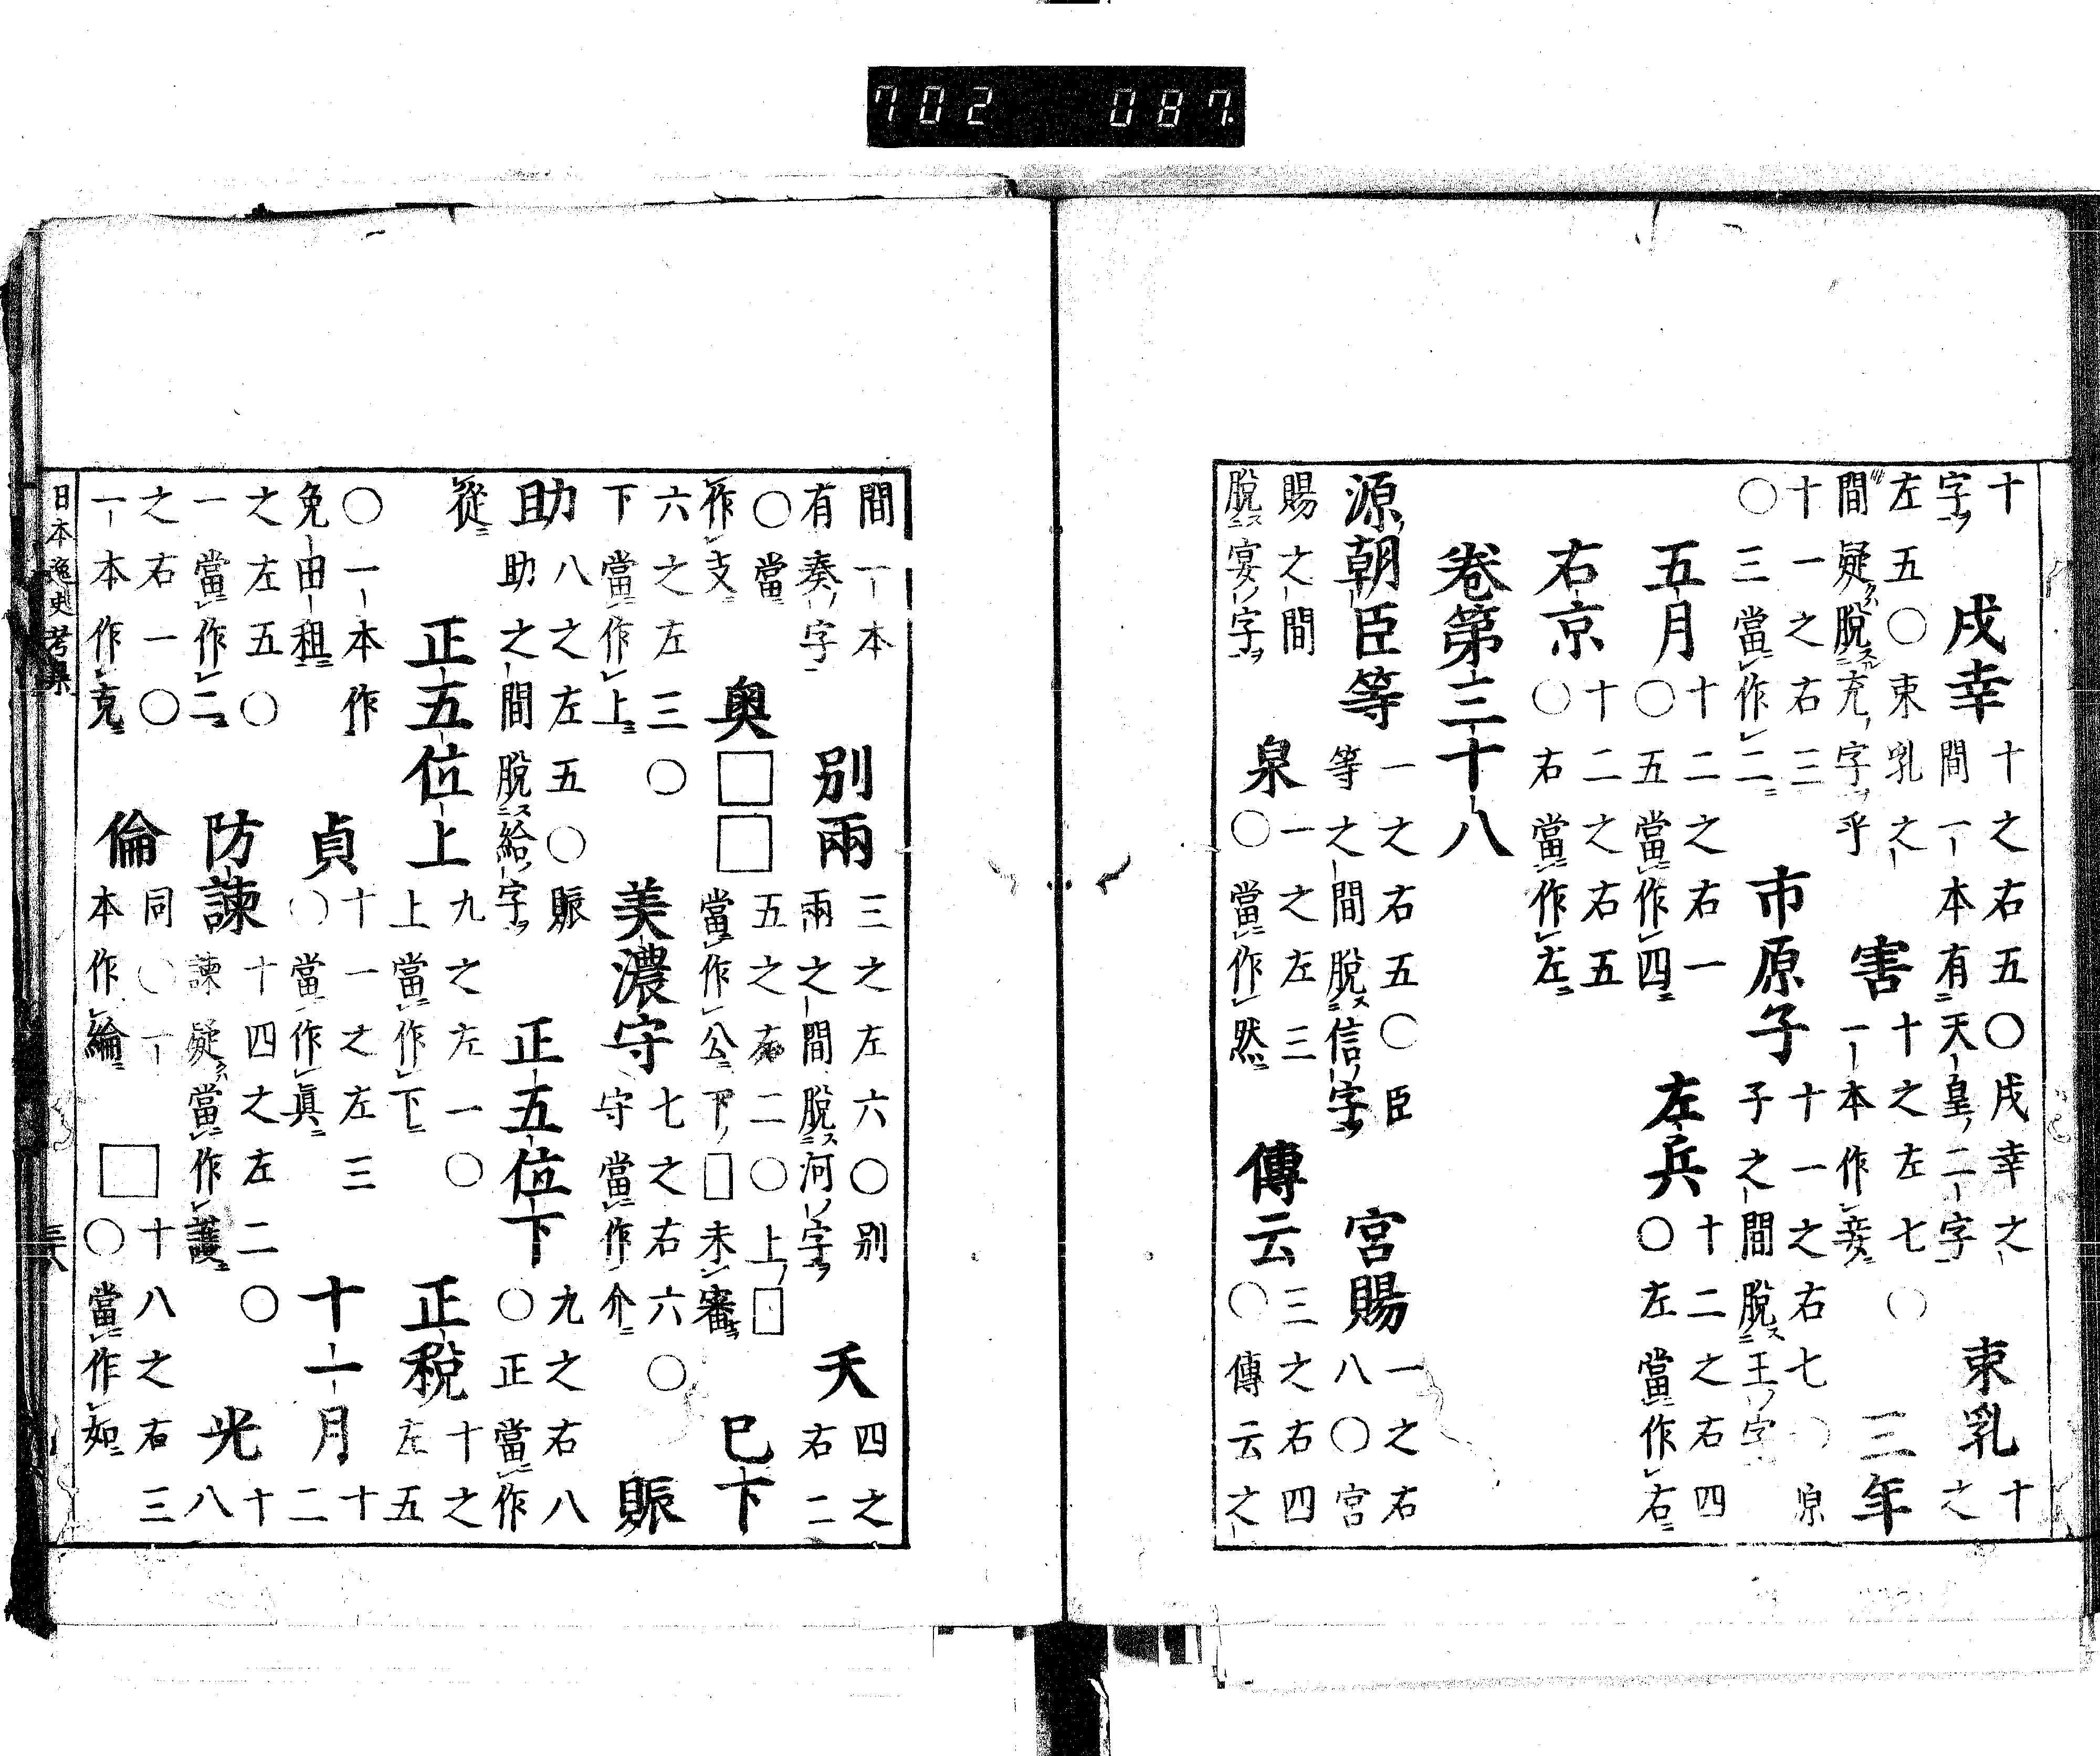 702 087
十字ヲ 戌幸 十之右五〇戌幸之間一本有天皇二字 束乳 十之
左五〇束乳之間疑脱充字乎 害 十之左七〇一本作妾 三年
十一之右三〇三當作二 市原子 十一之右七〇原子之間脱王字
五月 十二之右一〇五當作四 左兵 十二之右四〇左當作右
右京 十二之右五〇右當作左
卷第三十八
源朝臣等 一之右五〇臣等之間脱信字 宮賜 一之右八〇宮
賜之間脱宴字 泉 一之左三〇當作然 傳云 三之右四〇傳云之
間一本有奏字 別兩 三之左六〇別兩之間脱河字 夭 四之右二
〇當作支 奥□□ 五之右二〇上□當作公下□未審 巳下
六之左三〇下當作上 美濃守 七之右六〇守當作介 賑
助 八之左五〇賑助之間脱給字 正五位下 九之右八〇正當作
從 正五位上 九之左一〇上當作下 正税 十之左五
〇一本作免由租 貞 十一之左三〇當作眞 十一月 十二
之左五〇一當作二 防諫 十四之左二〇諫疑當作護 光 十八
之右一〇一本作克 倫 同〇一本作綸 □ 十八之右三〇當作如
日本逸史考異